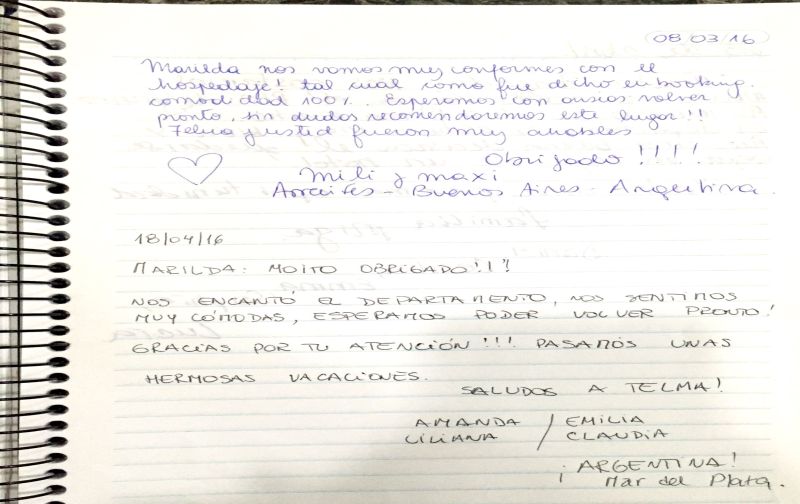 08/03/16
Marilda nos vamos muy conformes con el
hospedaje! tal cual como fue dicho en booking.
comodidad 100%. Esperamos con ansias volver
pronto, sin dudas recomendaremos este lugar!!
Telma y usted fueron muy amables
Obrigado!!!!
Mili y maxi
Arrecifes - Buenos Aires - Argentina.
18/04/16
MARILDA: MOITO OBRIGADO!!!
NOS ENCANTÓ EL DEPARTAMENTO, NOS SENTIMOS
MUY CÓMODAS, ESPERAMOS PODER VOLVER PRONTO!
GRACIAS POR TU ATENCIÓN!!! PASAMOS UNAS
HERMOSAS VACACIONES.
SALUDOS A TELMA!
AMANDA / EMILIA
LILIANA / CLAUDIA
¡ARGENTINA!
Mar del Plata.